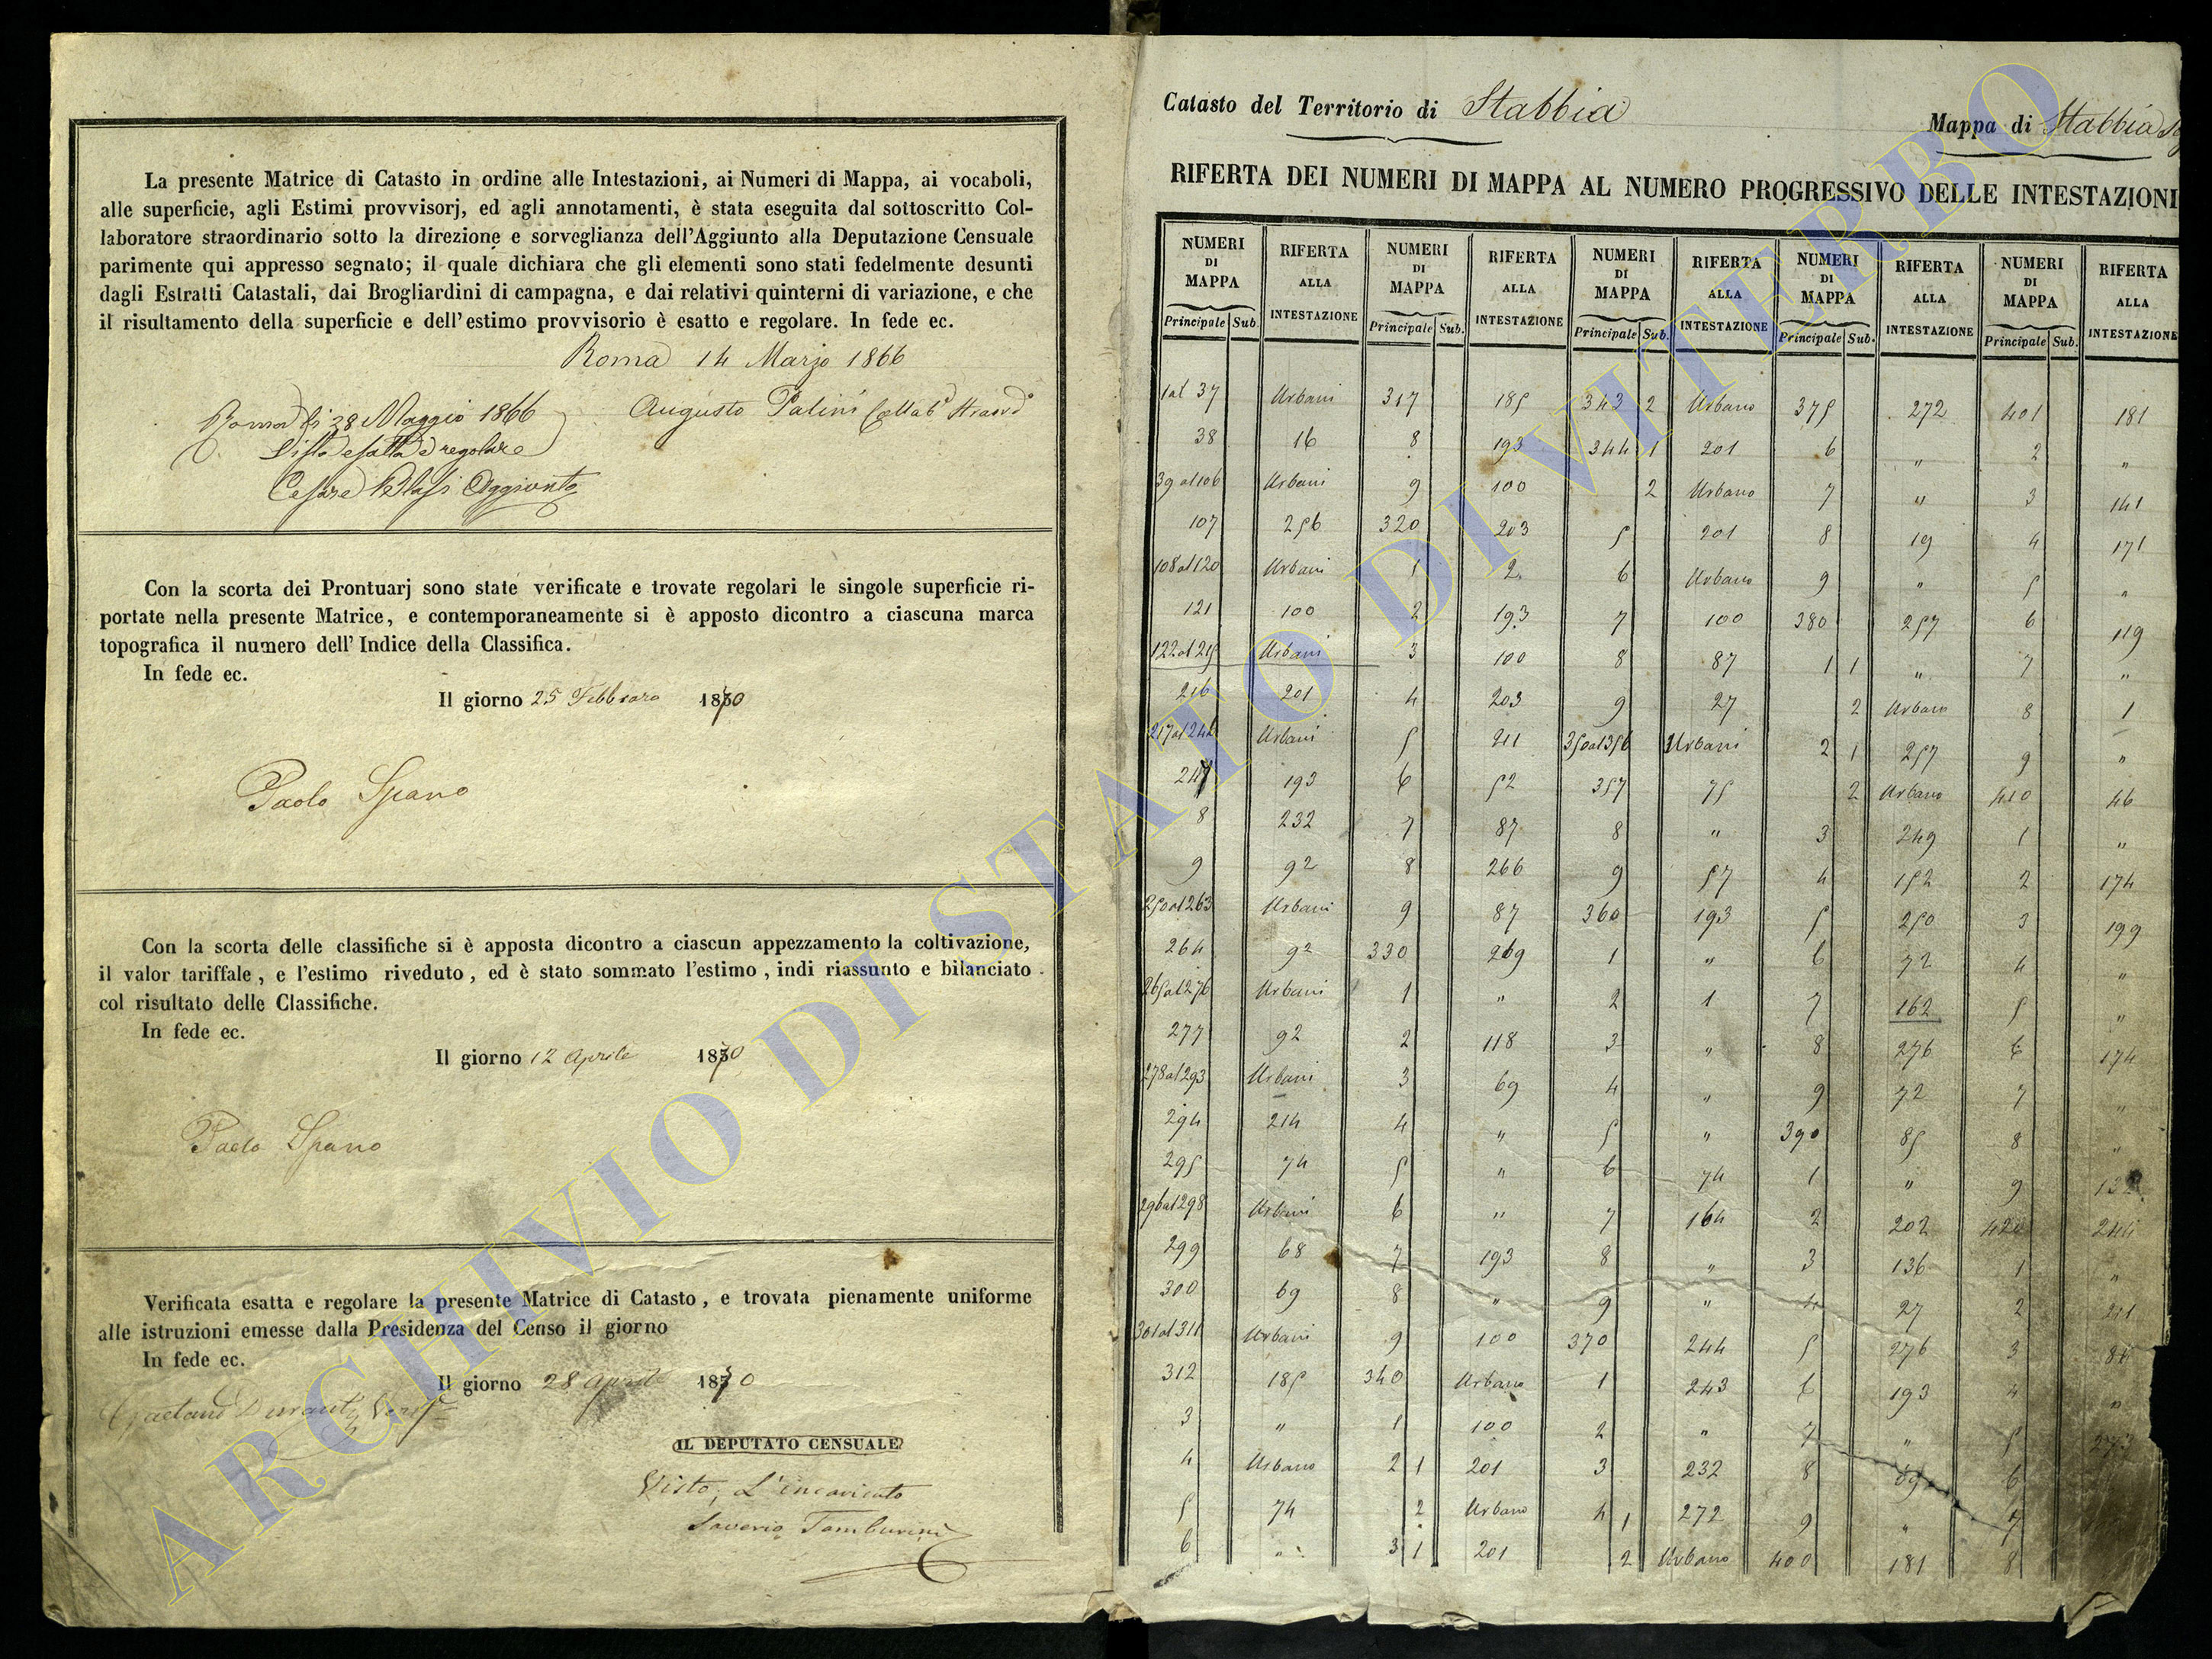 La presente Matrice di Catasto in ordine alle Intestazioni, ai Numeri di Mappa, ai vocaboli,
alle superficie, agli Estimi provvisorj, ed agli annotamenti, è stata eseguita dal sottoscritto Col-
laboratore straordinario sotto la direzione e sorveglianza dell'Aggiunto alla Deputazione Censuale
parimente qui appresso segnato; il quale dichiara che gli elementi sono stati fedelmente desunti
dagli Estratti Catastali, dai Brogliardini di campagna, e dai relativi quinterni di variazione, e che
il risultamento della superficie e dell'estimo provvisorio è esatto e regolare. In fede ec.
Roma 14 Marzo 1866
Augusto Palini
Roma li 28 Maggio 1866
Visto esatta e regolare
Cesare Blasi Aggiunto
Con la scorta dei Prontuarj sono state verificate e trovate regolari le singole superficie ri-
portate nella presente Matrice, e contemporaneamente si è apposto dicontro a ciascuna marca
topografica il numero dell' Indice della Classifica.
In fede ec.
Il giorno 25 Febbraro 1870
Paolo Spano
Con la scorta delle classifiche si è apposta dicontro a ciascun appezzamento la coltivazione,
il valor tariffale, e l'estimo riveduto, ed è stato sommato l'estimo, indi riassunto e bilanciato
col risultato delle Classifiche.
In fede ec.
Il giorno 12 Aprile 1870
Paolo Spano
Verificata esatta e regolare la presente Matrice di Catasto, e trovata pienamente uniforme
alle istruzioni emesse dalla Presidenza del Censo il giorno
In fede ec.
Il giorno 28 Aprile 1870
Gaetano
IL DEPUTATO CENSUALE
Visto, L'incaricato
Saverio Tamburini
Catasto del Territorio di Stabbia
Mappa di Stabbia
RIFERTA DEI NUMERI DI MAPPA AL NUMERO PROGRESSIVO DELLE INTESTAZIONI
NUMERI DI MAPPA RIFERTA ALLA INTESTAZIONE NUMERI DI MAPPA RIFERTA ALLA INTESTAZIONE NUMERI DI MAPPA RIFERTA ALLA INTESTAZIONE NUMERI DI MAPPA RIFERTA ALLA INTESTAZIONE NUMERI DI MAPPA RIFERTA ALLA INTESTAZIONE
Principale Sub. Principale Sub. Principale Sub. Principale Sub. Principale Sub.
1 al 37 Urbani 317 185 343 2 Urbano 375 272 401 181
38 16 8 193 344 1 201 6 " 2 "
39 al 106 Urbani 9 100 2 Urbano 7 " 3 141
107 256 320 203 5 201 8 19 4 171
108 al 120 Urbani 1 2 6 Urbano 9 " 5 "
121 100 2 193 7 100 380 257 6 119
122 al 215 Urbani 3 100 8 87 1 1 " 7 "
216 201 4 203 9 27 2 Urbano 8 1
217 al 246 Urbani 5 211 350 al 356 Urbani 2 1 257 9 "
247 193 6 52 357 75 2 Urbano 410 46
8 232 7 87 8 " 3 249 1 "
9 92 8 266 9 57 4 152 2 174
250 al 263 Urbani 9 87 360 193 5 250 3 199
264 92 330 269 1 " 6 72 4 "
265 al 276 Urbani 1 " 2 1 7 162 5 "
277 92 2 118 3 " 8 276 6 174
278 al 293 Urbani 3 69 4 " 9 72 7 "
294 214 4 " 5 " 390 85 8 "
295 74 5 " 6 74 1 " 9
296 al 298 Urbani 6 " 7 164 2 202 420 244
299 68 7 193 8 " 3 136 1 "
300 69 8 " 9 " 4 27 2
301 al 311 Urbani 9 100 370 244 5 276 3
312 185 340 Urbano 1 243 6 193 4 "
3 " 1 100 2 " 7 " 5 273
4 Urbano 2 1 201 3 232 8 69 6
5 74 2 Urbano 4 1 272 9 " 7
6 " 3 1 201 2 Urbano 400 181 8
ARCHIVIO DI STATO DI VITERBO